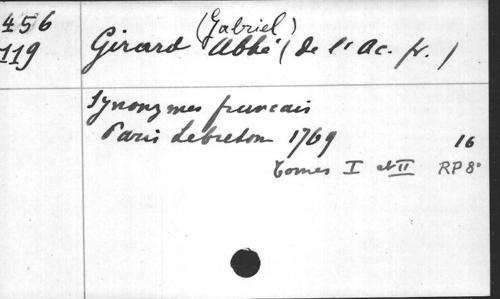 456
119
Girard (Gabriel) Abbé (de l'Ac. fr.)
Synonymes francais
Paris Lebreton 1769 16
tomes I et II RP 8°